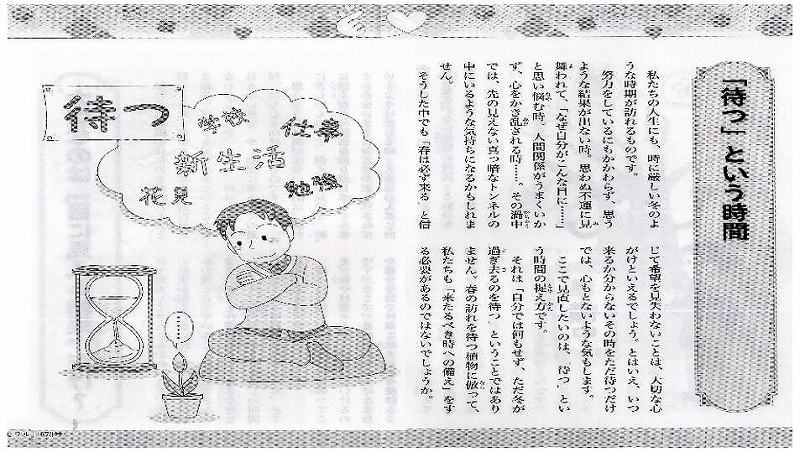 「待つ」という時間
私たちの人生にも、時に厳しい冬のよ
うな時期が訪れるものです。
努力をしているにもかかわらず、思う
ような結果が出ない時。思わぬ不運に見
舞われて、「なぜ自分がこんな目に……」
と思い悩む時。人間関係がうまくいか
ず、心をかき乱される時……。その渦中
では、先の見えない真っ暗なトンネルの
中にいるような気持ちになるかもしれま
せん。
そうした中でも「春は必ず来る」と信
じて希望を見失わないことは、大切な心
がけといえるでしょう。とはいえ、いつ
来るか分からないその時をただ待つだけ
では、心もとないような気もします。
ここで見直したいのは、「待つ」とい
う時間の捉え方です。
それは「自分では何もせず、ただ冬が
過ぎ去るのを待つ」ということではあり
ません。春の訪れを待つ植物に倣って、
私たちも「来たるべき時への備え」をす
る必要があるのではないでしょうか。
待つ
学校
仕事
新生活
花見
勉強
……